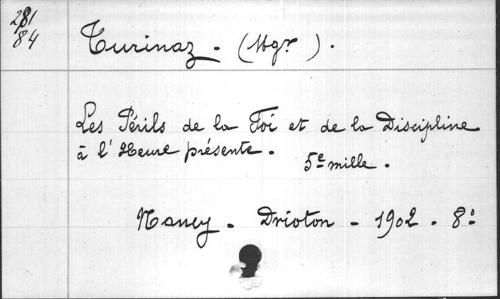 281
84
Turinaz. (Mgr).
Les Périls de la Foi et de la Discipline
à l'Heure présente.
5e mille.
Nancy - Drioton - 1902. 8º